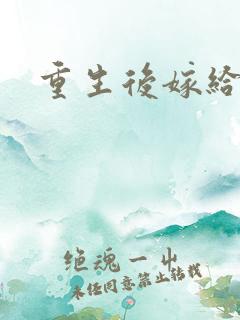 重生後嫁給
绝魂一出
未经同意禁止转载